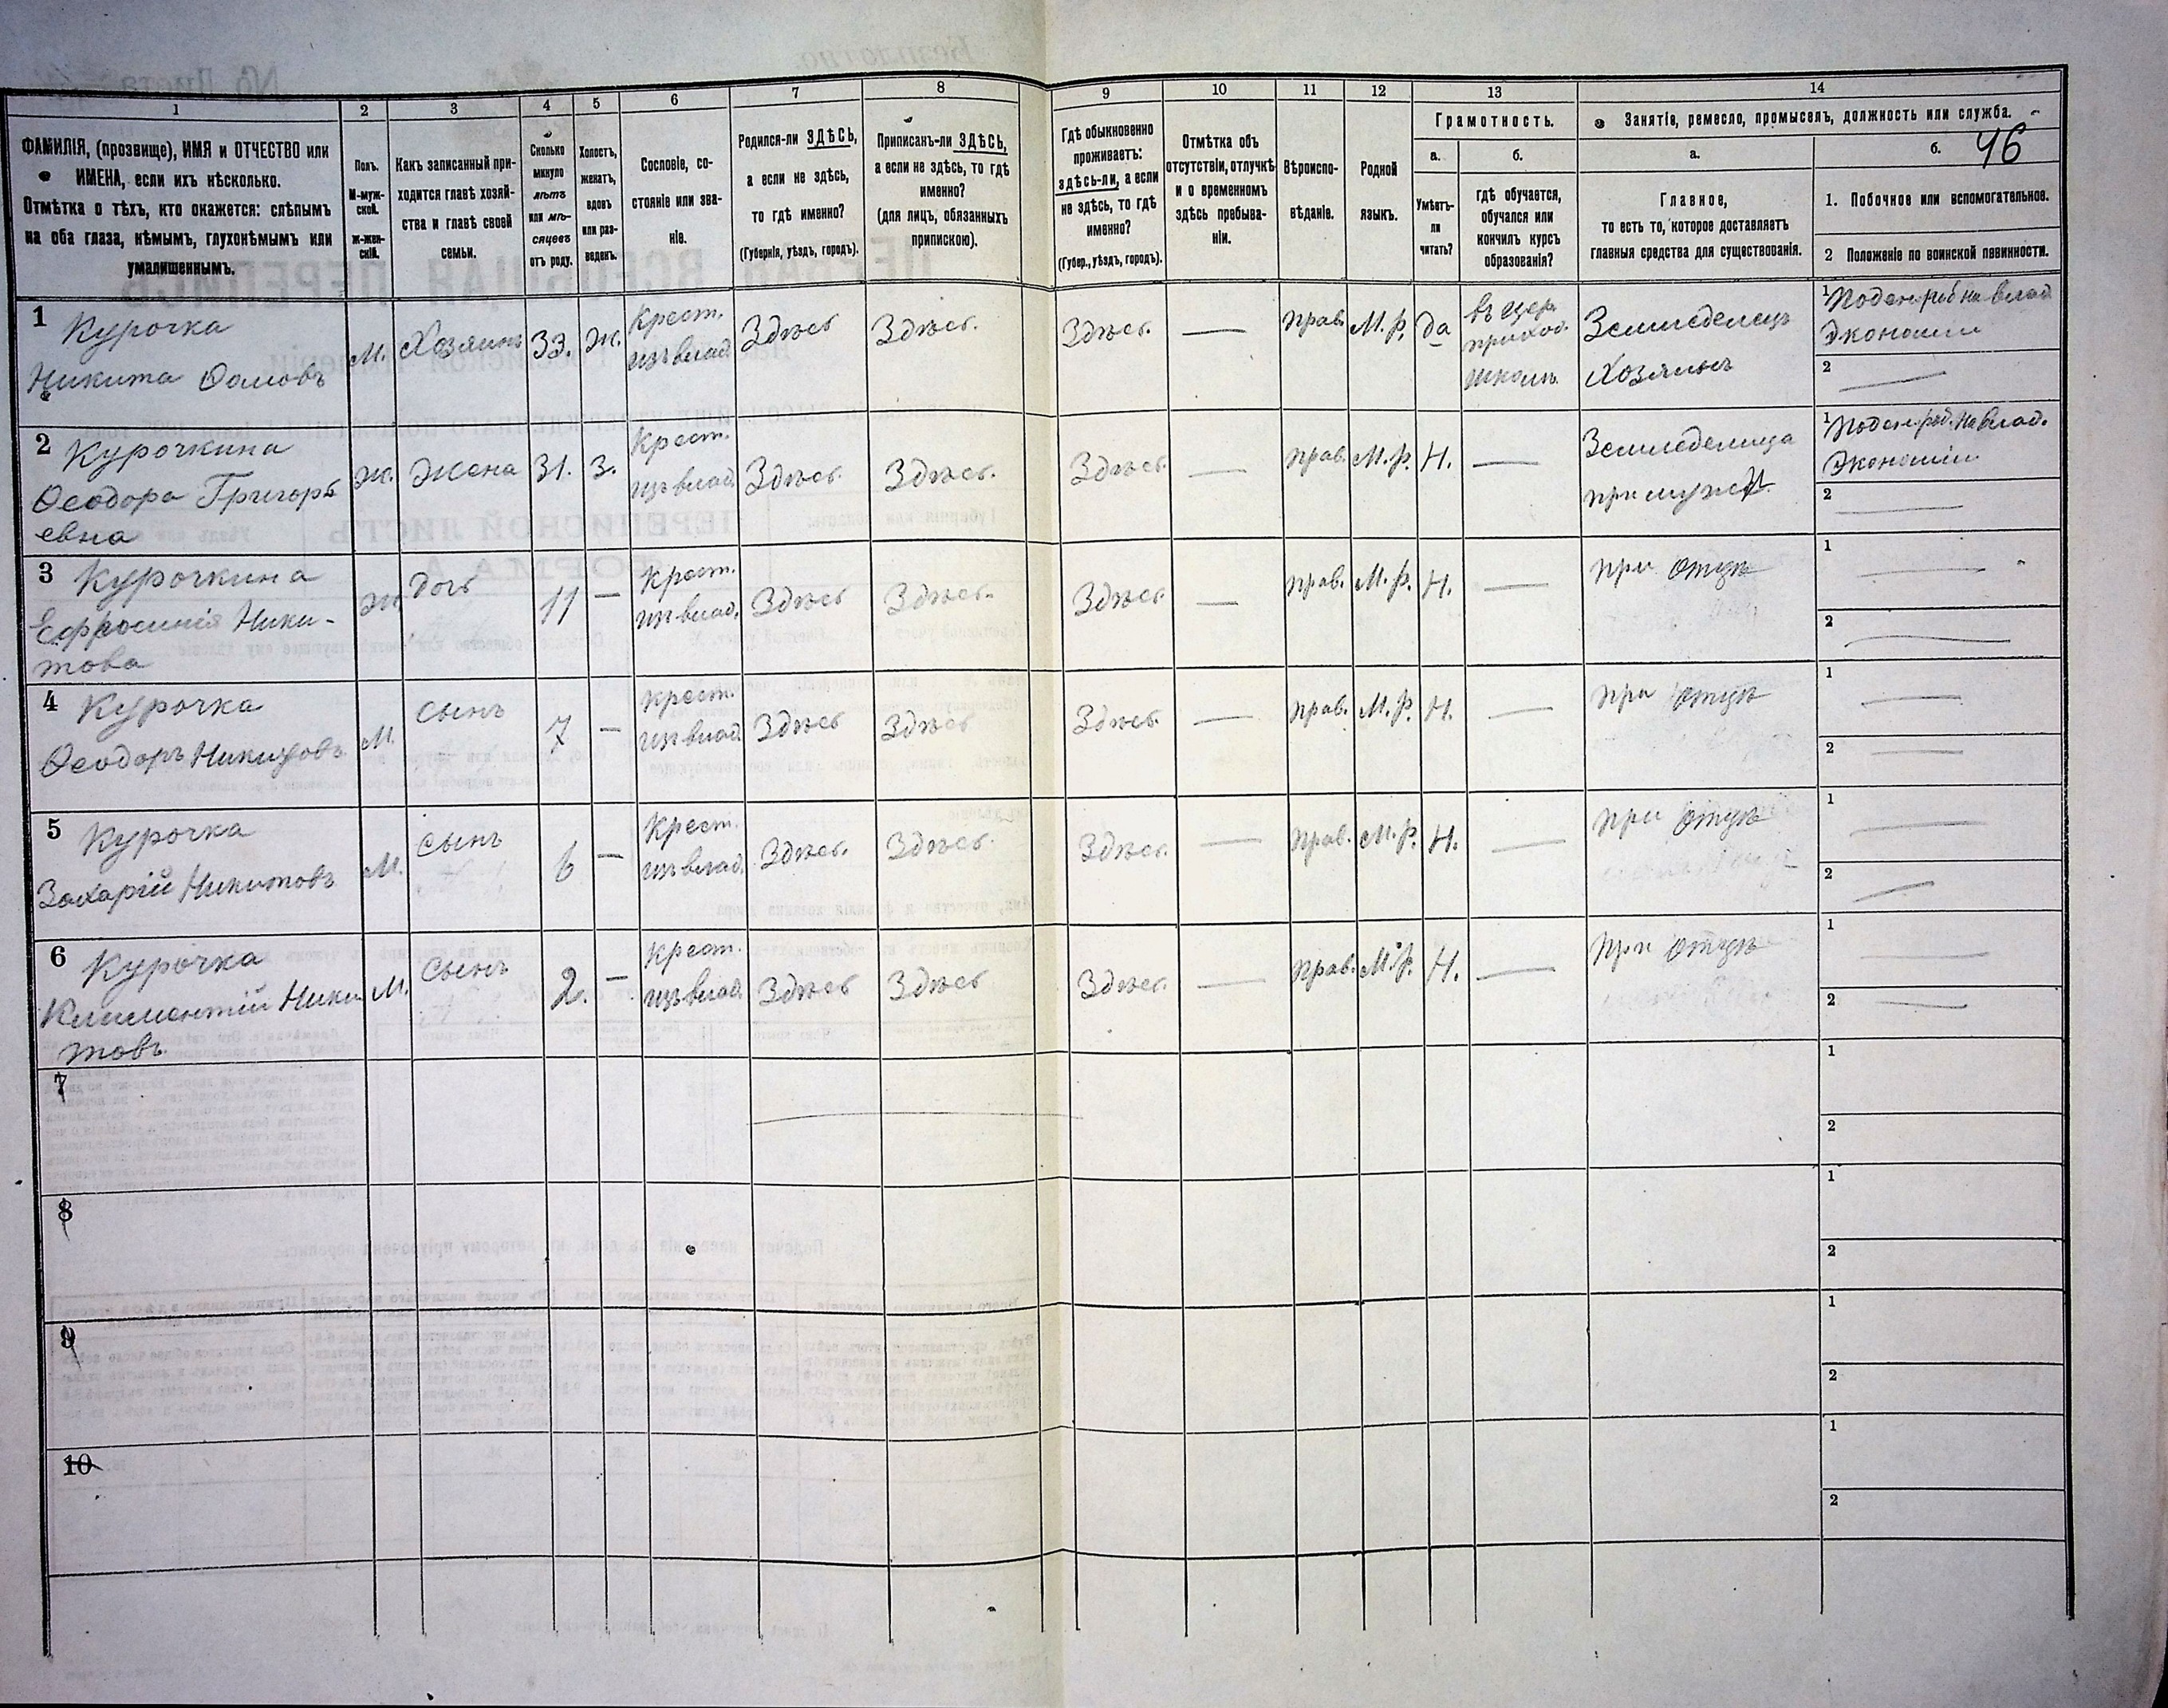 46
1 2 3 4 5 6 7 8 9 10 11 12 13 14
ФАМИЛІЯ, (прозвище), ИМЯ и ОТЧЕСТВО или
ИМЕНА, если ихъ нѣсколько.
Отмѣтка о тѣхъ, кто окажется: слѣпымъ
на оба глаза, нѣмымъ, глухонѣмымъ или
умалишеннымъ.
Полъ.
М-муж-
ской.
ж-жен-
скій.
Какъ записанный при-
ходится главѣ хозяй-
ства и главѣ своей
семьи.
Сколько
минуло
лѣтъ
или мѣ-
сяцевъ
отъ роду.
Холостъ,
женатъ,
вдовъ
или раз-
веденъ.
Сословіе, со-
стояніе или зва-
ніе.
Родился-ли ЗДѢСЬ,
а если не здѣсь,
то гдѣ именно?
(Губернія, уѣздъ, городъ).
Приписанъ-ли ЗДѢСЬ,
а если не здѣсь, то гдѣ
именно?
(для лицъ, обязанныхъ
припискою).
Гдѣ обыкновенно
проживаетъ:
здѣсь-ли, а если
не здѣсь, то гдѣ
именно?
(Губер., уѣздъ, городъ).
Отмѣтка объ
отсутствіи, отлучкѣ
и о временномъ
здѣсь пребыва-
ніи.
Вѣроиспо-
вѣданіе.
Родной
языкъ.
Грамотность.
а.
Умѣетъ-
ли
читать?
б.
гдѣ обучается,
обучался или
кончилъ курсъ
образованія?
Занятіе, ремесло, промыселъ, должность или служба.
а.
Главное,
то есть то, которое доставляетъ
главныя средства для существованія.
б.
1. Побочное или вспомогательное.
2 Положеніе по воинской повинности.
1 Курочка
Никита Ѳомовъ
м. Хозяинъ 33. ж.
Крест.
изъ влад.
Здѣсь Здѣсь. Здѣсь. — прав. М. р. да
въ церк.
приход.
школѣ.
Земледелецъ
Хозяинъ
1 Поден. раб на влад
Экономіи
2 —
2 Курочкина
Ѳеодора Григорь
евна
ж. Жена 31. З.
Крест.
изъ влад.
Здѣсь. Здѣсь. Здѣсь. — прав. М. р. Н. —
Земледелица
при мужѣ
1 Поден. раб. на влад.
Экономіи
2 —
3 Курочкина
Ефросинія Ники-
това
ж дочь 11 —
Крест.
изъ влад.
Здѣсь Здѣсь. Здѣсь — прав. М. р. Н. — при отцѣ
1 —
2 —
4 Курочка
Ѳеодоръ Никитовъ
М. сынъ 7 —
Крест.
изъ влад.
Здѣсь Здѣсь Здѣсь. — прав. М. р. Н. — при отцѣ
1 —
2 —
5 Курочка
Захарій Никитовъ
М. сынъ 6 —
Крест.
изъ влад.
Здѣсь. Здѣсь. Здѣсь. — прав. М. р. Н. — при отцѣ
1 —
2 —
6 Курочка
Климентій Ники
товъ
М. Сынъ 2. —
Крест.
изъ влад.
Здѣсь Здѣсь Здѣсь. — прав. М. р. Н. — при отцѣ
1 —
2 —
7
1
2
8
1
2
9
1
2
10
1
2